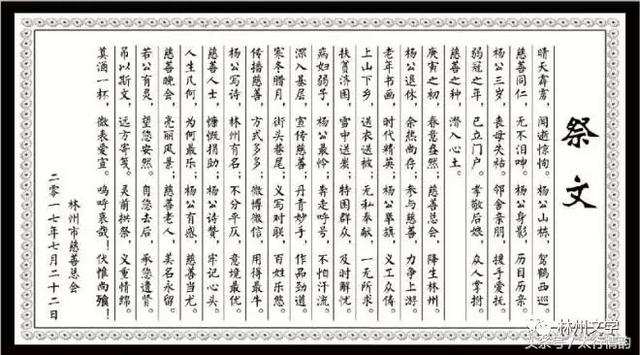 祭文
晴天霹雳,闻逝惊恂。杨公山栋,驾鹤西巡。
慈善同仁,无不泪呻。杨公身影,历目历亲。
杨公三岁,丧母失祜。邻舍亲朋,援手爱抚。
弱冠之年,已立门户。孝敬后娘,众人掌拊。
慈善之种,潜入心土。
庚寅之初,春意盎然;慈善总会,降生林州。
杨公退休,余热尚存;参与慈善,力争上游。
老年书画,时代精英;杨公举旗,义工众俦。
上山下乡,送衣送被;无私奉献,一无所求。
扶贫济困,雪中送炭;特困群众,及时解忧。
病妇弱子,杨公最怜;奔走呼号,不怕汗流。
深入基层,宣传慈善;丹青妙手,作品劲道。
寒冬腊月,街头巷尾;义写对联,百姓乐悠。
传播慈善,方式多多;微博微信,用得最牛。
杨公写诗,林州有名;不分平仄,意境最优。
慈善人士,慷慨捐助;杨公诗赞,牢记心头。
人生几何,为何最乐;杨公有感,慈善当尤。
慈善晚会,亮丽风景;慈善老人,美名永留。
若公有灵,望您安然。自您去后,承您遗贤。
吊以斯文,远方寄笺。灵前拱祭,义重情绵。
奠酒一杯,微表爱宣。呜呼哀哉!伏惟尚飨!
林州市慈善总会
二零一七年七月二十二日
林州文学
头条号/太行情韵